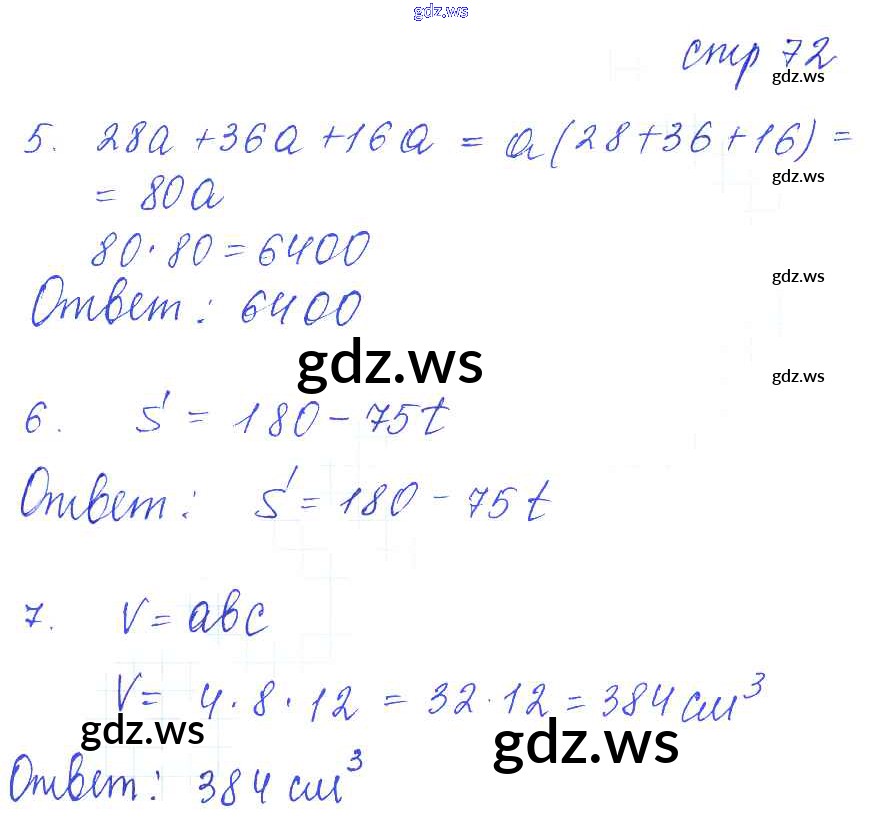 gdz.ws
стр 72
gdz.ws
5. 28a + 36a + 16a = a(28 + 36 + 16) =
gdz.ws
= 80a
80 · 80 = 6400
gdz.ws
Ответ: 6400
gdz.ws
gdz.ws
6. S' = 180 - 75t
Ответ: S' = 180 - 75t
7. V = abc
V = 4 · 8 · 12 = 32 · 12 = 384 см³
gdz.ws
gdz.ws
Ответ: 384 см³